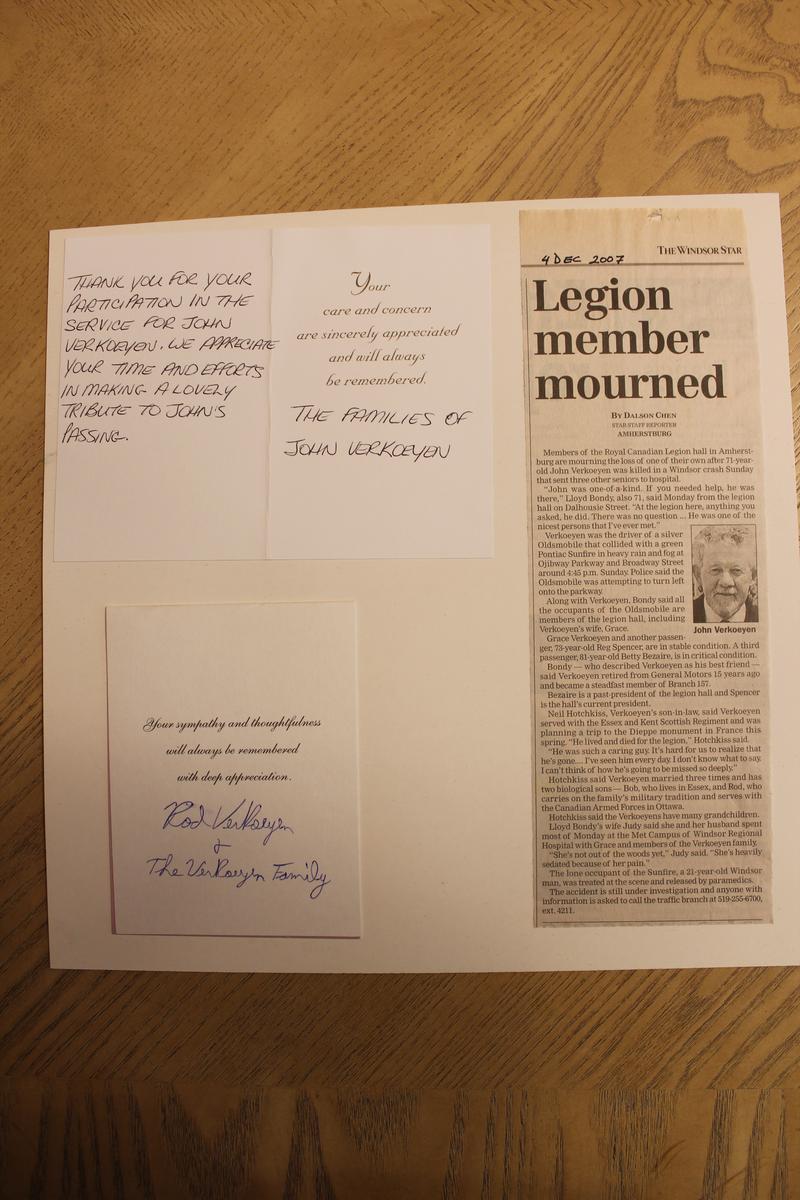 THANK YOU FOR YOUR
PARTICIPATION IN THE
SERVICE FOR JOHN
VERKOEYEN. WE APPRECIATE
YOUR TIME AND EFFORTS
IN MAKING A LOVELY
TRIBUTE TO JOHN'S
PASSING.
Your
care and concern
are sincerely appreciated
and will always
be remembered.
THE FAMILIES OF
JOHN VERKOEYEN
Your sympathy and thoughtfulness
will always be remembered
with deep appreciation.
Rod VerKoeyen
&
The VerKoeyen Family
4 DEC 2007
THE WINDSOR STAR
Legion
member
mourned
BY DALSON CHEN
STAR STAFF REPORTER
AMHERSTBURG
Members of the Royal Canadian Legion hall in Amherst-
burg are mourning the loss of one of their own after 71-year-
old John Verkoeyen was killed in a Windsor crash Sunday
that sent three other seniors to hospital.
"John was one-of-a-kind. If you needed help, he was
there," Lloyd Bondy, also 71, said Monday from the legion
hall on Dalhousie Street. "At the legion here, anything you
asked, he did. There was no question ... He was one of the
nicest persons that I've ever met."
Verkoeyen was the driver of a silver
Oldsmobile that collided with a green
Pontiac Sunfire in heavy rain and fog at
Ojibway Parkway and Broadway Street
around 4:45 p.m. Sunday. Police said the
Oldsmobile was attempting to turn left
onto the parkway.
Along with Verkoeyen, Bondy said all
the occupants of the Oldsmobile are
members of the legion hall, including
Verkoeyen's wife, Grace.
John Verkoeyen
Grace Verkoeyen and another passen-
ger, 73-year-old Reg Spencer, are in stable condition. A third
passenger, 81-year-old Betty Bezaire, is in critical condition.
Bondy — who described Verkoeyen as his best friend —
said Verkoeyen retired from General Motors 15 years ago
and became a steadfast member of Branch 157.
Bezaire is a past-president of the legion hall and Spencer
is the hall's current president.
Neil Hotchkiss, Verkoeyen's son-in-law, said Verkoeyen
served with the Essex and Kent Scottish Regiment and was
planning a trip to the Dieppe monument in France this
spring. "He lived and died for the legion," Hotchkiss said.
"He was such a caring guy. It's hard for us to realize that
he's gone.... I've seen him every day. I don't know what to say.
I can't think of how he's going to be missed so deeply."
Hotchkiss said Verkoeyen married three times and has
two biological sons — Bob, who lives in Essex, and Rod, who
carries on the family's military tradition and serves with
the Canadian Armed Forces in Ottawa.
Hotchkiss said the Verkoeyens have many grandchildren.
Lloyd Bondy's wife Judy said she and her husband spent
most of Monday at the Met Campus of Windsor Regional
Hospital with Grace and members of the Verkoeyen family.
"She's not out of the woods yet," Judy said. "She's heavily
sedated because of her pain."
The lone occupant of the Sunfire, a 21-year-old Windsor
man, was treated at the scene and released by paramedics.
The accident is still under investigation and anyone with
information is asked to call the traffic branch at 519-255-6700,
ext. 4211.